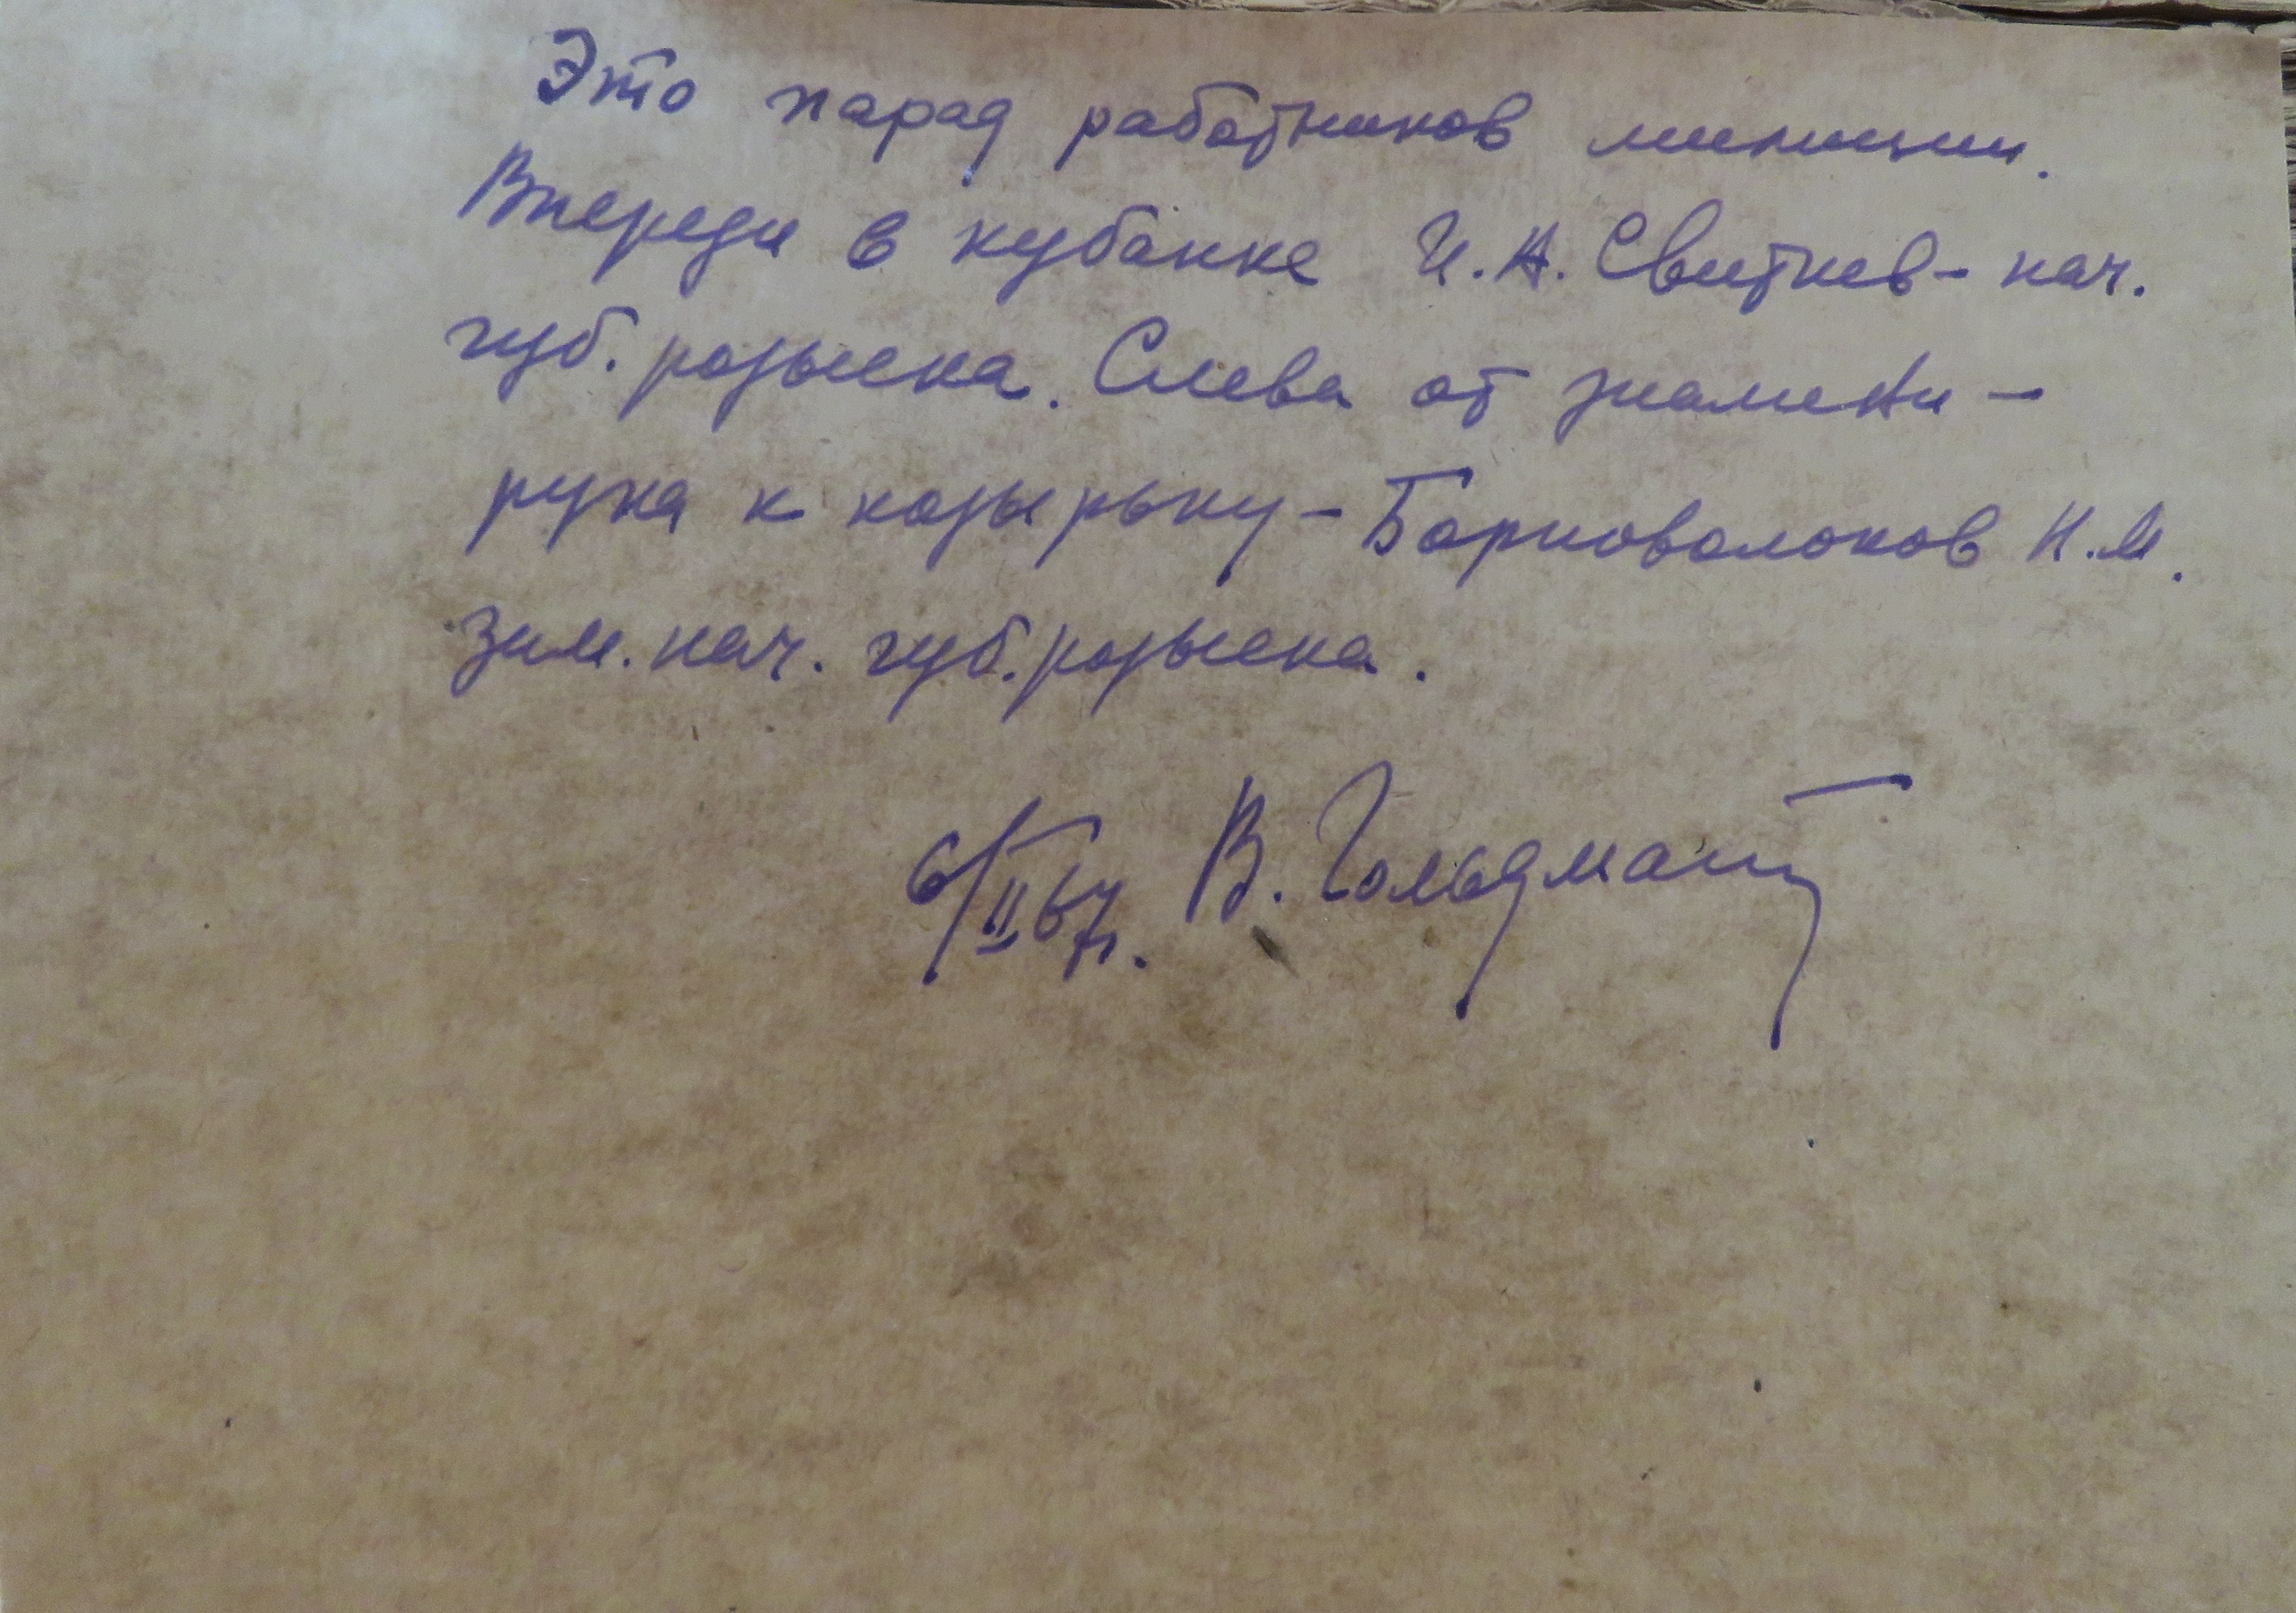 Это парад работников милиции.
Впереди в кубанке И.А. Свитнев - нач.
губ. розыска. Слева от знамени -
рука к козырьку - Борноволоков Н.М.
зам. нач. губ. розыска.
6/II 67г. В. Гольдман